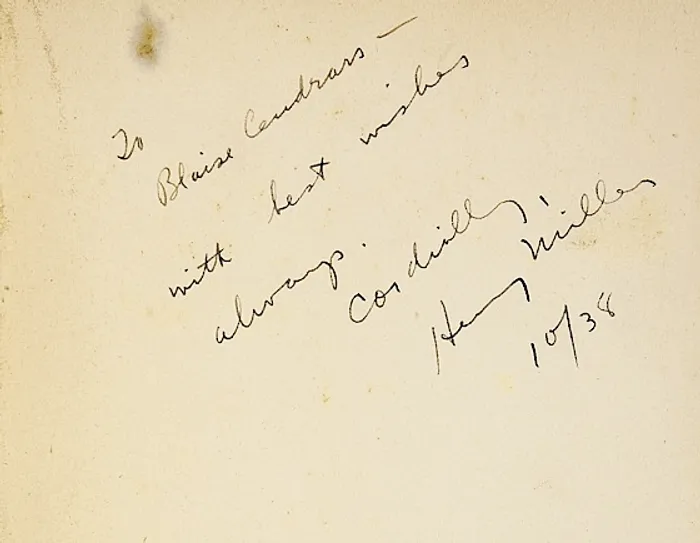 To
Blaise Cendrars —
with best wishes
always.
Cordially,
Henry Miller
10/38